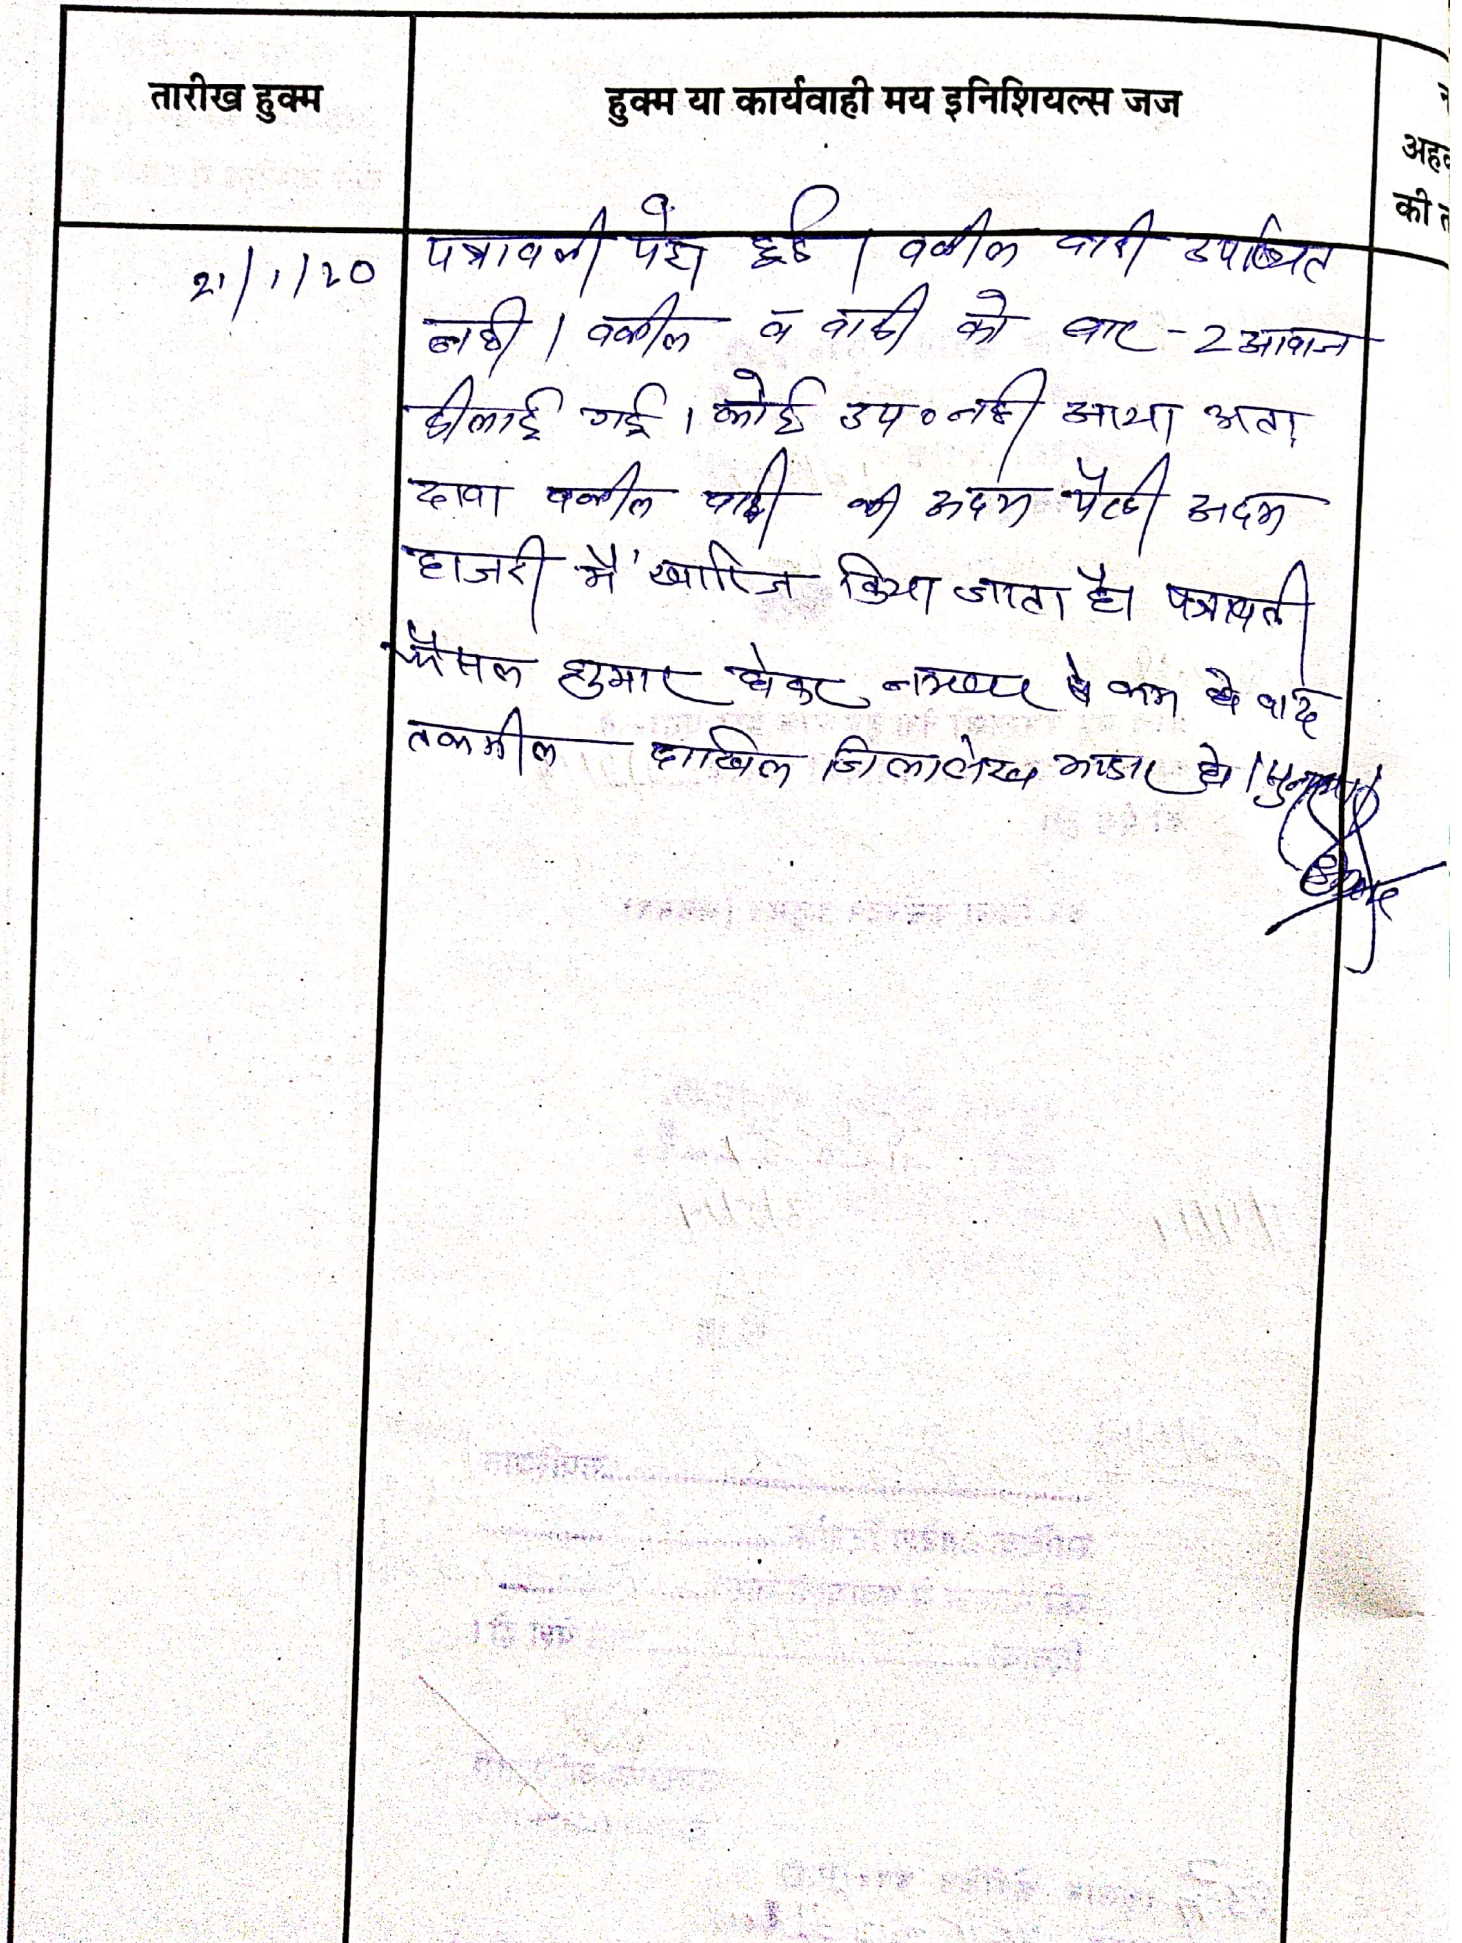 तारीख हुक्म
हुक्म या कार्यवाही मय इनिशियल्स जज
अहल
की त
21/1/20
पत्रावली पेश हुई । वकील वादी उपस्थित
नही । वकील व वादी को बार-2 आवाज
दीलाई गई । कोई उप० नही आया अतः
दावा वकील वादी की अदम पैरवी अदम
हाजरी मे खारिज किया जाता है। पत्रावली
फैसल शुमार होकर नम्बर से कम हो बाद
तकमील दाखिल जिला लेख भण्डार हो ।